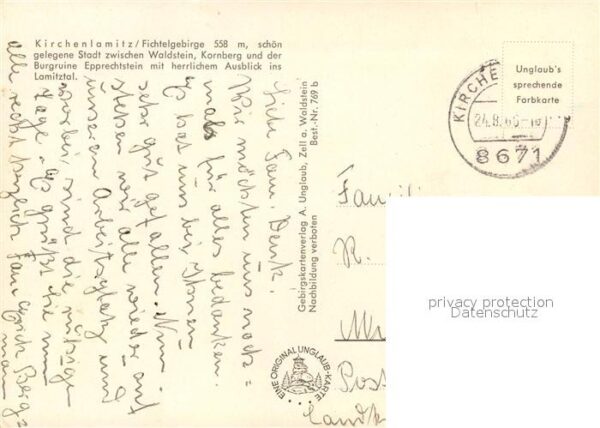 Kirchenlamitz/Fichtelgebirge 558 m, schön
gelegene Stadt zwischen Waldstein, Kornberg und der
Burgruine Epprechtstein mit herrlichem Ausblick ins
Lamitztal.
Liebe Fam. Denk!
Wir möchten uns noch=
mals für alles bedanken.
Es hat uns bei Ihnen
sehr gut gefallen. Nun
stehen wir alle wieder auf
unserem Arbeitsplatz und
vorbei sind die
Tage. Es grüßt Sie nun
alle recht herzlich Fam. Berg=
mann
Gebirgskartenverlag A. Unglaub, Zell a. Waldstein
Nachbildung verboten Best.-Nr. 769 b
Unglaub's
sprechende
Farbkarte
KIRCHE
24.8.
8671
Famili
R.
Post
Landk
EINE ORIGINAL UNGLAUB-KARTE
privacy protection
Datenschutz